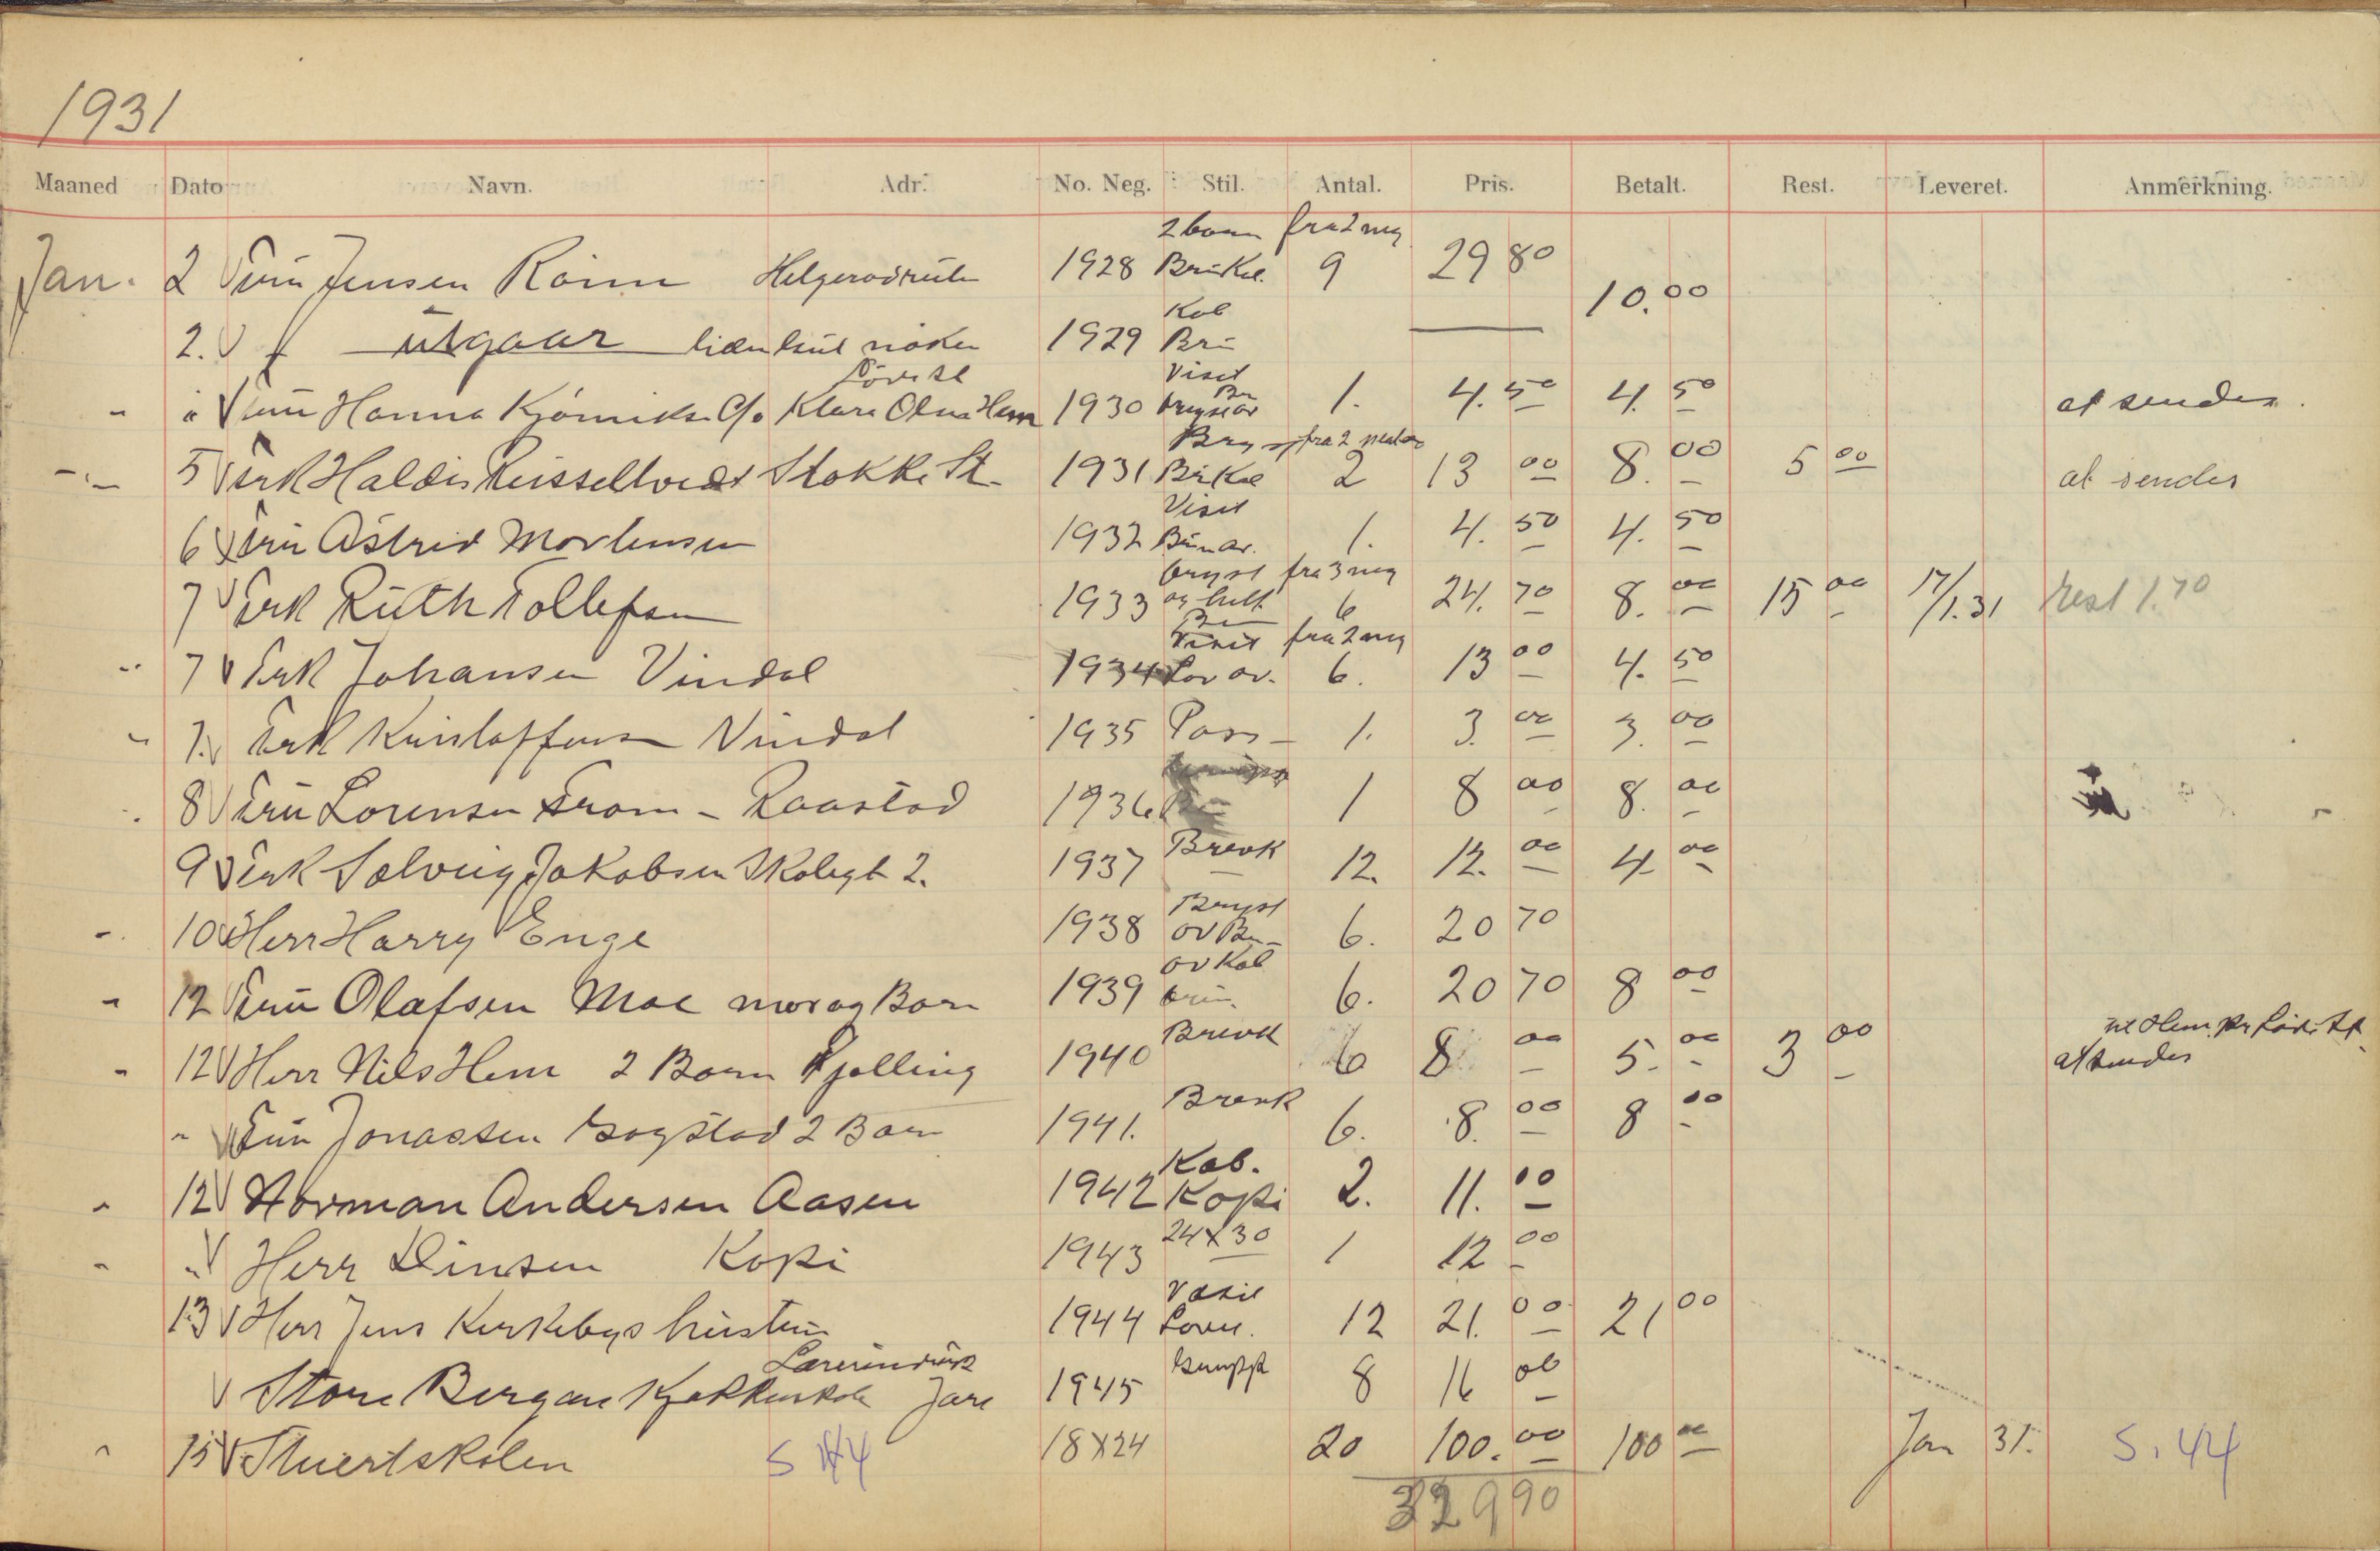 1931
Maaned Dato Navn. Adr. No. Neg. Stil. Antal. Pris. Betalt. Rest. Leveret. Anmerkning.
2 barn fra 2 neg
Jan. 2 V Fru Jensen Raim 1928 9 29 80 10.00
Kab
2. V utgaar 1929 Bru
Visit
" " V Fru Hanna c/o Klara Hem 1930 1. 4.50 4.50 at sendes.
Bryst fra 2
5 V Frk Haldis Stokke St. 1931 2 13 00 8.00 5 00 at sendes
Visit
6 V Fru Astrid Mortensen 1932 1. 4.50 4.50
bryst fra 3 neg
7 V Frk Ruth Tollefsen 1933 og helt 6 24.70 8.00 15 00 17/1.31 rest 1.70
Visit fra 2 neg
" 7 V Frk Johansen Vindal 1934 ov. 6. 13 00 4.50
" 7. V Frk Kristoffersen Vindal 1935 Pass 1. 3.00 3.00
8 V Fru Lorensen Fram - Raastad 1936 1 8 00 8.00
9 V Frk Solveig Jakobsen Skolegt 2. 1937 Brevk 12. 12.00 4 00
Bryst
" 10 V Herr Harry Enge 1938 ov Bru 6. 20 70
ov Kab
" 12 V Fru Olafsen Moe mor og Barn 1939 brun. 6. 20 70 8 00
" 12 V Herr Nils Hem 2 Barn Kjølling 1940 Brevk 6 8 00 5.00 3 00 at sendes
" V Fru Jonassen Gogstad 2 Barn 1941. Brevk 6. 8.00 8 00
Kab.
" 12 V Norman Andersen Aasen 1942 Kopi 2. 11.00
" " V Herr Dinsen Kopi 1943 24x30 1 12 00
Visit
13 V Herr Jens Kirkebys hustru 1944 12 21.00 21 00
V Store Bergan Jare 1945 Grupp 8 16 00
" 15 V Stuertskolen S 44 18x24 20 100.00 100 00 Jan 31. S. 44
329 90